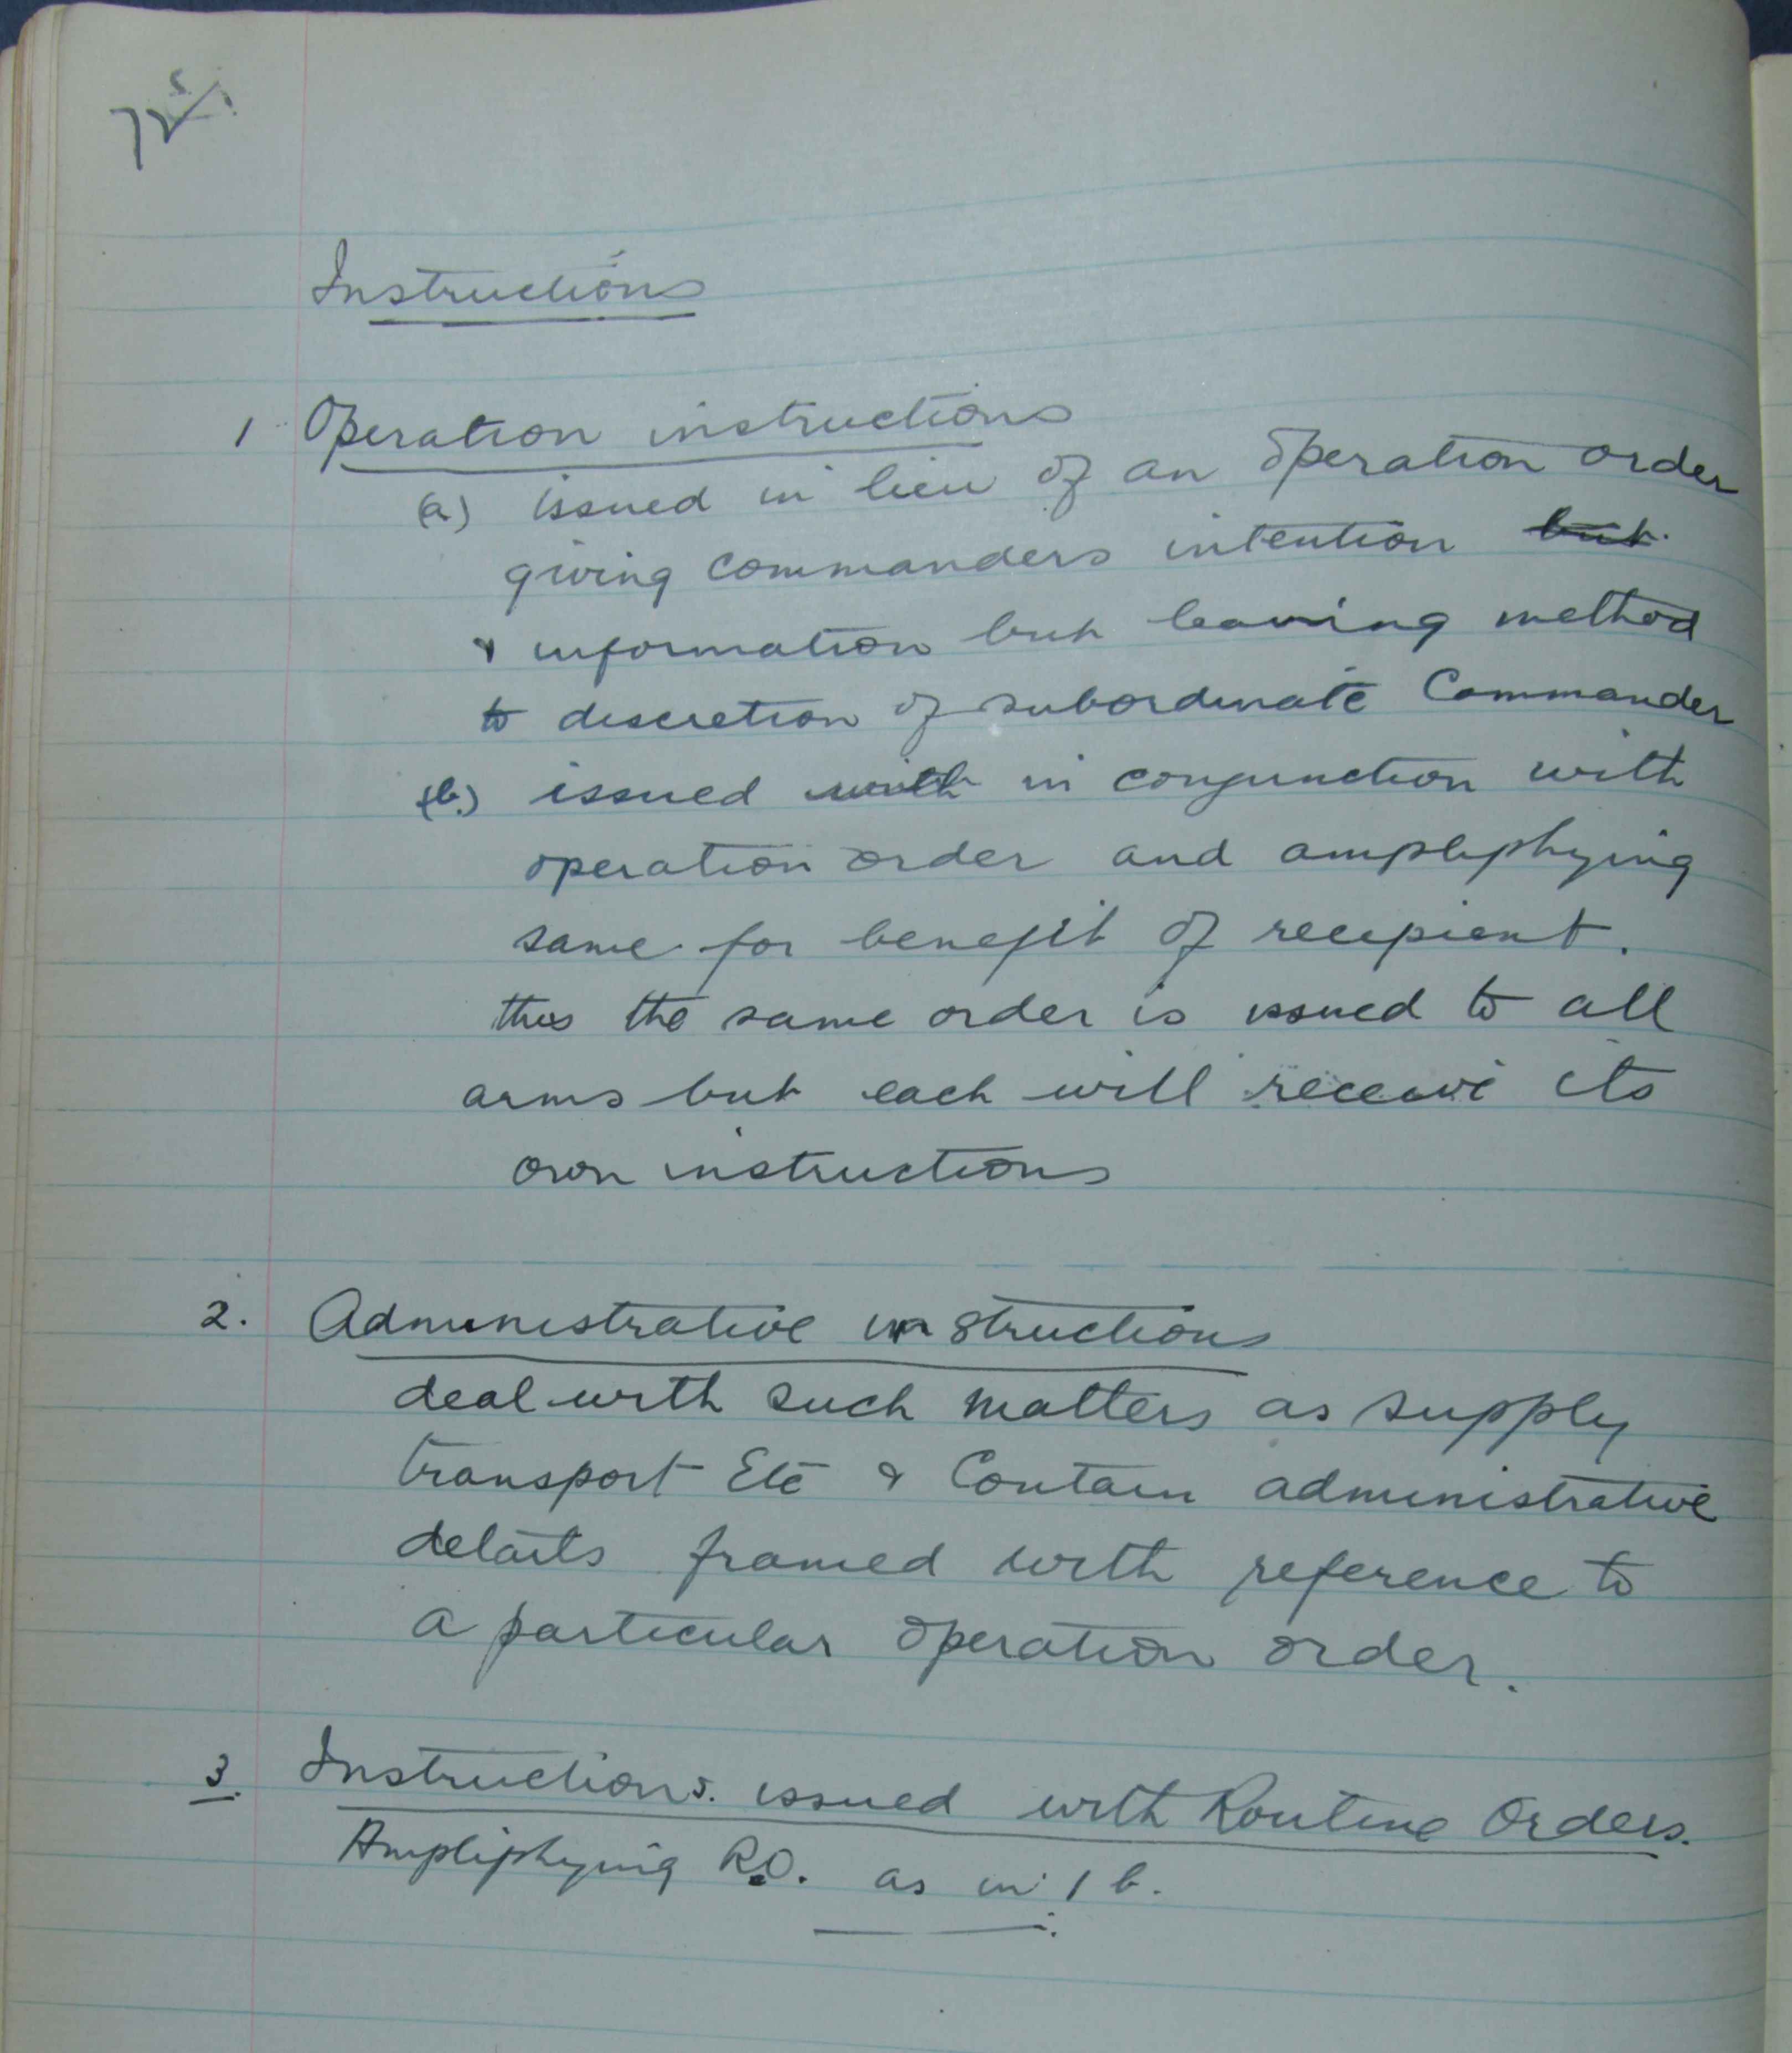 72
Instructions
1 Operation instructions
(a) issued in lieu of an operation order
giving commanders intention but
& information but leaving method
to discretion of subordinate Commander
(b.) issued with in conjunction with
operation order and ampliphying
same for benefit of recipient.
thus the same order is issued to all
arms but each will receive its
own instructions
2. Administrative instructions
deal with such matters as supply
transport Etc & Contain administrative
details framed with reference to
a particular operation order.
3. Instructions. issued with Routine Orders.
Ampliphying R.O. as in 1 b.